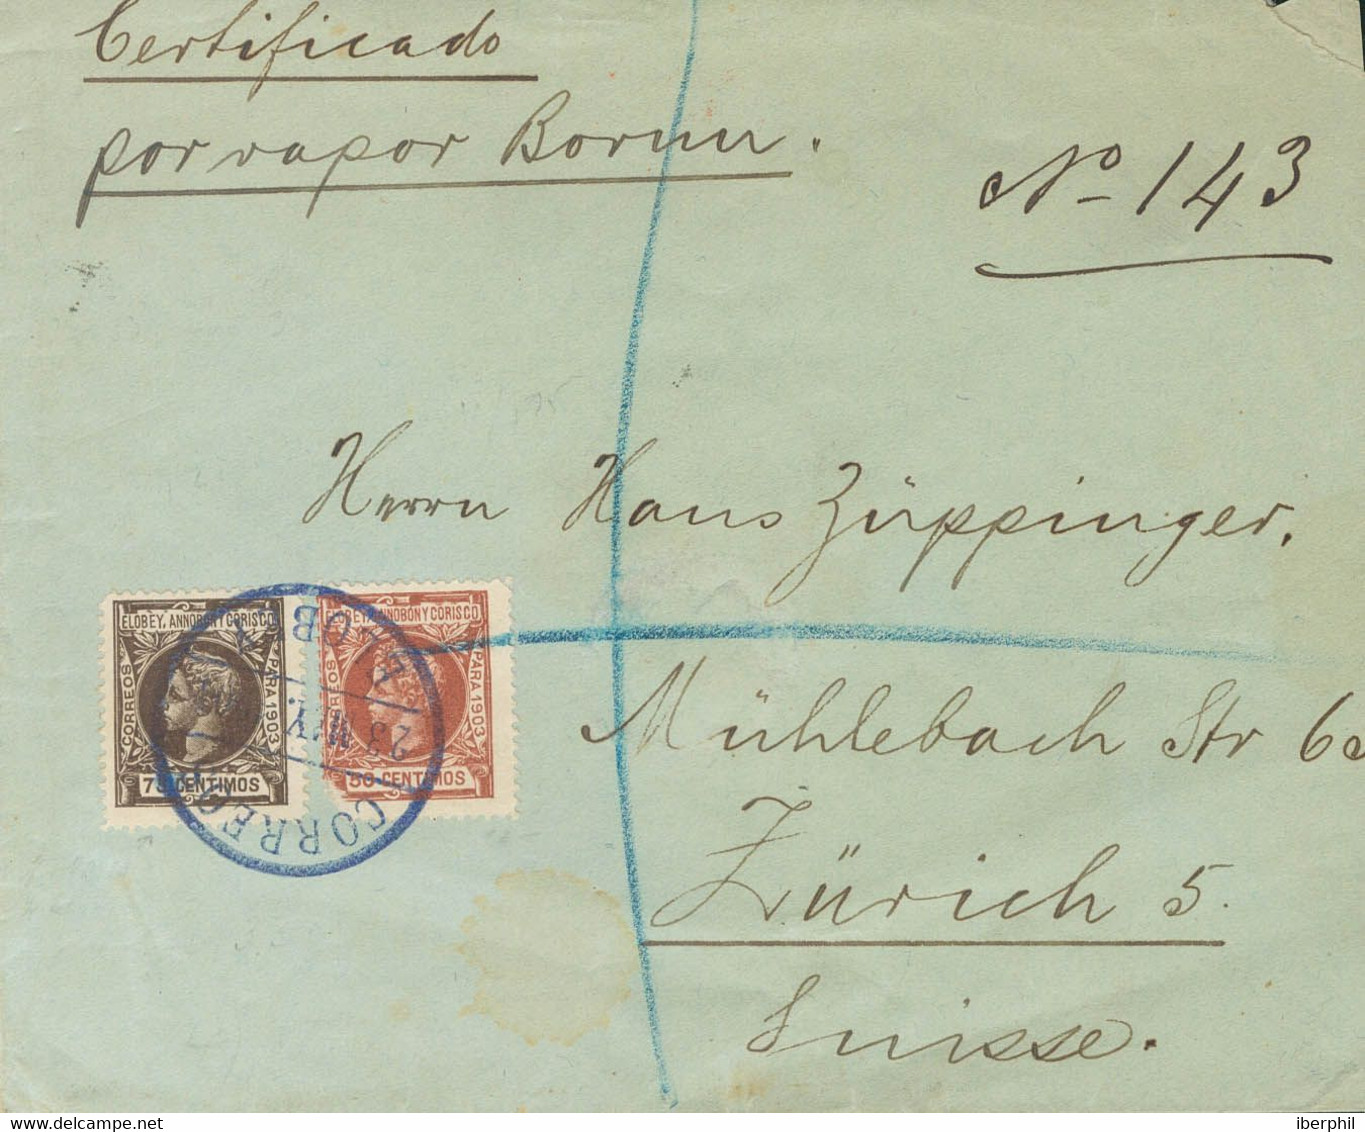 Certificado
por vapor Bornu.
No 143
Herrn Hans Züppinger.
Mühlebach Str
Zürich 5.
Suisse.
ELOBEY, ANNOBÓN Y CORISCO
CORREOS
PARA 1903
75 CENTIMOS
ELOBEY, ANNOBÓN Y CORISCO
CORREOS
PARA 1903
50 CENTIMOS
CORREOS
23 MAY.
iberphil